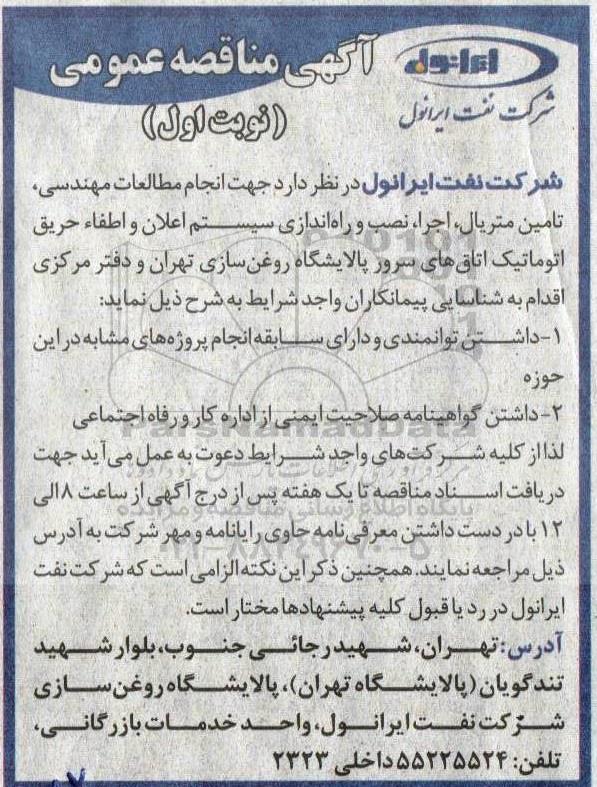 ایرانول
شرکت نفت ایرانول
آگهی مناقصه عمومی
(نوبت اول)
شرکت نفت ایرانول در نظر دارد جهت انجام مطالعات مهندسی،
تامین متریال، اجرا، نصب و راه‌اندازی سیستم اعلان و اطفاء حریق
اتوماتیک اتاق‌های سرور پالایشگاه روغن‌سازی تهران و دفتر مرکزی
اقدام به شناسایی پیمانکاران واجد شرایط به شرح ذیل نماید:
۱-داشتن توانمندی و دارای سابقه انجام پروژه‌های مشابه در این
حوزه
۲-داشتن گواهینامه صلاحیت ایمنی از اداره کار و رفاه اجتماعی
ParsNamadData
لذا از کلیه شرکت‌های واجد شرایط دعوت به عمل می‌آید جهت
دریافت اسناد مناقصه تا یک هفته پس از درج آگهی از ساعت ۸ الی
پایگاه اطلاع رسانی مناقصه و مزایده
۱۲ با در دست داشتن معرفی نامه حاوی رایانامه و مهر شرکت به آدرس
۰۲۱-۸۸۳۴۹۶۷۰-۵
ذیل مراجعه نمایند. همچنین ذکر این نکته الزامی است که شرکت نفت
ایرانول در رد یا قبول کلیه پیشنهادها مختار است.
آدرس: تهران، شهید رجائی جنوب، بلوار شهید
تندگویان (پالایشگاه تهران)، پالایشگاه روغن‌سازی
شرکت نفت ایرانول، واحد خدمات بازرگانی،
تلفن: ۵۵۲۲۵۵۲۴ داخلی ۲۳۲۳